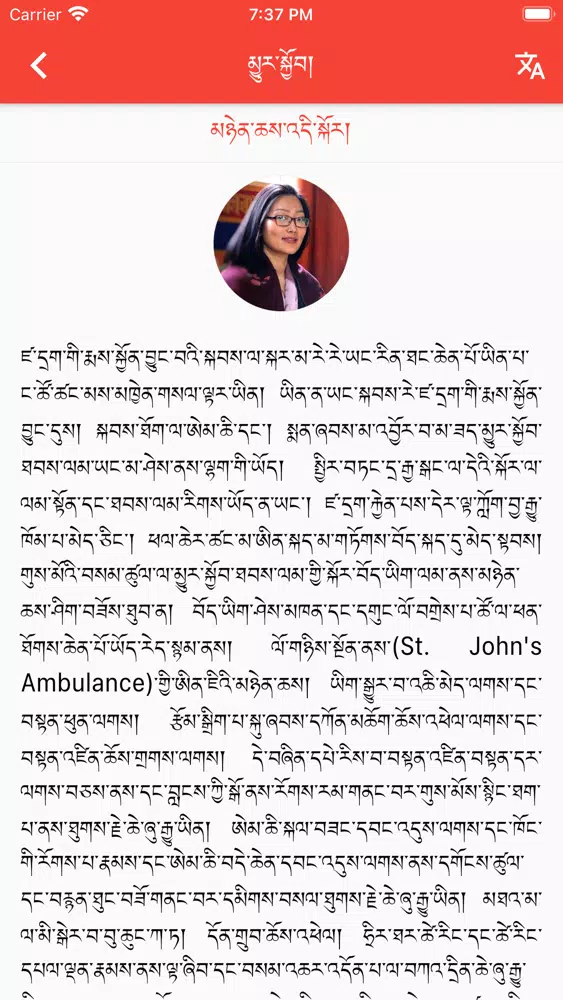 Carrier 7:37 PM
མྱུར་སྐྱོབ།
མཉེན་ཆས་འདི་སྐོར།
ཛ་དྲག་གི་རྨས་སྐྱོན་བྱུང་བའི་སྐབས་ལ་སྐར་མ་རེ་རེ་ཡང་རིན་ཐང་ཆེན་པོ་ཡིན་པ་
ང་ཚོ་ཚང་མས་མཁྱེན་གསལ་ལྟར་ཡིན། ཡིན་ན་ཡང་སྐབས་རེ་ཛ་དྲག་གི་རྨས་སྐྱོན་
བྱུང་དུས། སྐབས་ཐོག་ལ་ཨེམ་ཆི་དང་། སྨན་ཞབས་མ་འབྱོར་བ་མ་ཟད་མྱུར་སྐྱོབ་
ཐབས་ལམ་ཡང་མ་ཤེས་ནས་ལྷག་གི་ཡོད། སྤྱིར་བཏང་དྲ་རྒྱ་སྒང་ལ་དེའི་སྐོར་ལ་
ལམ་སྟོན་དང་ཐབས་ལམ་རིགས་ཡོད་ན་ཡང་། ཛ་དྲག་རྐྱེན་པས་དེར་ལྟ་ཀློག་བྱ་རྒྱུ་
ཁོམ་པ་མེད་ཅིང་། ཕལ་ཆེར་ཚང་མ་ཨིན་སྐད་མ་གཏོགས་བོད་སྐད་དུ་མེད་སྟབས།
གུས་མོའི་བསམ་ཚུལ་ལ་མྱུར་སྐྱོབ་ཐབས་ལམ་གྱི་སྐོར་བོད་ཡིག་ལམ་ནས་མཉེན་
ཆས་ཤིག་བཟོས་ཐུབ་ན། བོད་ཡིག་ཤེས་མཁན་དང་དགུང་ལོ་བགྲེས་པ་ཚོ་ལ་ཕན་
ཐོགས་ཆེན་པོ་ཡོད་རེད་སྙམ་ནས། ལོ་གཉིས་སྔོན་ནས་(St. John's
Ambulance)་གྱི་ཨིན་ཇིའི་མཉེན་ཆས། ཡིག་སྒྱུར་བ་འཆི་མེད་ལགས་དང་
བསྟན་ཕུན་ལགས། རྩོམ་སྒྲིག་པ་སྐུ་ཞབས་དཀོན་མཆོག་ཆོས་འཕེལ་ལགས་དང་
བསྟན་འཛིན་ཆོས་གྲགས་ལགས། དེ་བཞིན་དཔེ་རིས་བ་བསྟན་འཛིན་བསྟན་དར་
ལགས་བཅས་ནས་དང་བླངས་ཀྱི་སྒོ་ནས་རོགས་རམ་གནང་བར་གུས་མོས་སྙིང་ཐག་
པ་ནས་ཐུགས་རྗེ་ཆེ་ཞུ་རྒྱུ་ཡིན། ཨེམ་ཆི་སྐལ་བཟང་དབང་འདུས་ལགས་དང་ཁོང་
གི་རོགས་པ་རྣམས་དང་ཨེམ་ཆི་བདེ་ཆེན་དབང་འདུས་ལགས་ནས་དགོངས་ཚུལ་
དང་བརྟན་ཐུང་བཟོ་གནང་བར་དམིགས་བསལ་ཐུགས་རྗེ་ཆེ་ཞུ་རྒྱུ་ཡིན། མཐའ་མ་
ལ་མི་སྒེར་བ་བུ་ཆུང་ཀ་ཏ། དོན་གྲུབ་ཆོས་འཕེལ། ཧྥིར་ཐར་ཚེ་རིང་དང་ཚེ་རིང་
དཔལ་ལྡན་རྣམས་ནས་ལྟ་ཞིབ་དང་བསམ་འཆར་འདོན་པ་ལ་བཀའ་དྲིན་ཆེ་ཞུ་རྒྱུ་